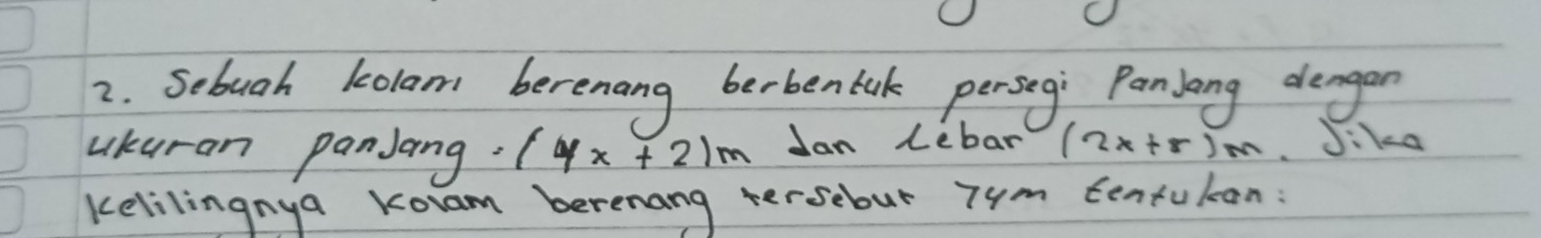 2. Sebuah kolam berenang berbentuk persegi Panjang dengan
ukuran panjang = (4x + 2)m dan Lebar (2x+5)m. Jika
Kelilingnya kolam berenang tersebut 74m tentukan: